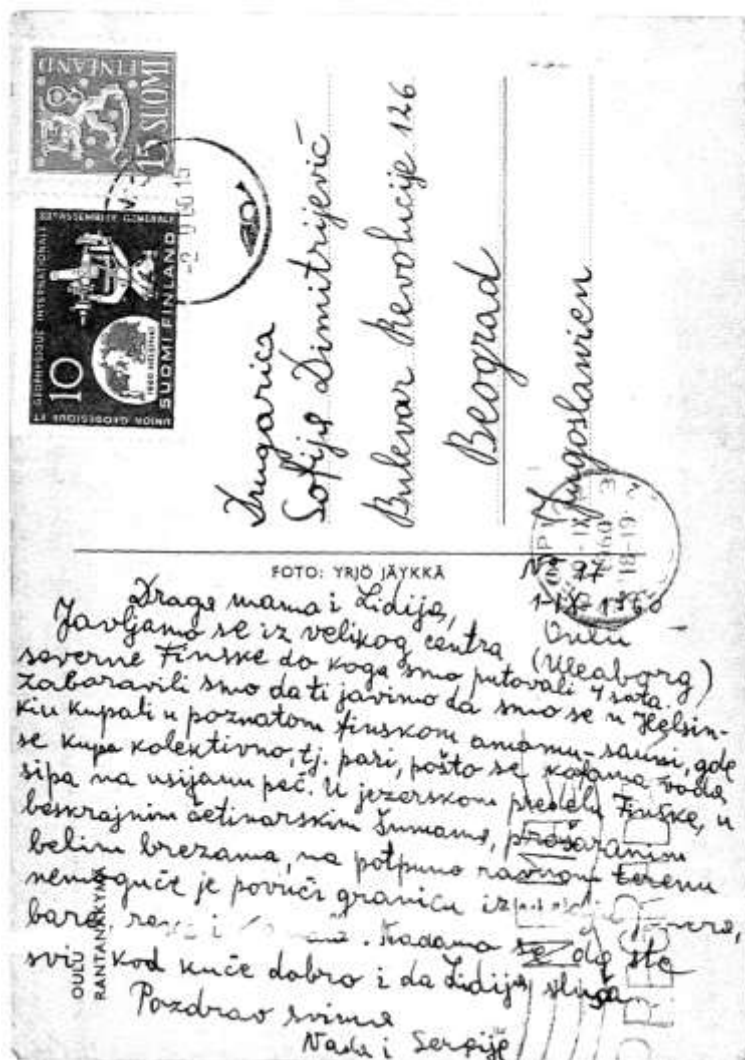 FINLAND
15 SUOMI
UNION GEODESIQUE ET GEOPHYSIQUE INTERNATIONALE
XII ASSEMBLEE GENERALE
10
1960 HELSINKI
SUOMI FINLAND
Drugarica
Sofija Dimitrijević
Bulevar Revolucije 126
Beograd
Jugoslawien
FOTO: YRJÖ JÄYKKÄ
No 97
1-IX-1960
Oulu
(Uleaborg)
Draga mama i Lidija,
Javljamo se iz velikog centra
severne Finske do koga smo putovali 7 sata.
Zaboravili smo da ti javimo da smo se u Helsin-
kiu kupali u poznatom finskom amamu-sauni, gde
se kupa kolektivno, tj. pari, pošto se kofama voda
sipa na usijanu peć. U jezerskom predelu Finske, u
beskrajnim četinarskim šumama, prošaranim
belim brezama, na potpuno ravnom terenu
nemoguće je povući granicu
bara, i . Nadamo se da ste
svi kod kuće dobro i da Lidija sluša.
Pozdrav svima
Nada i Sergije
OULU
RANTANÄKYMÄ
18-19